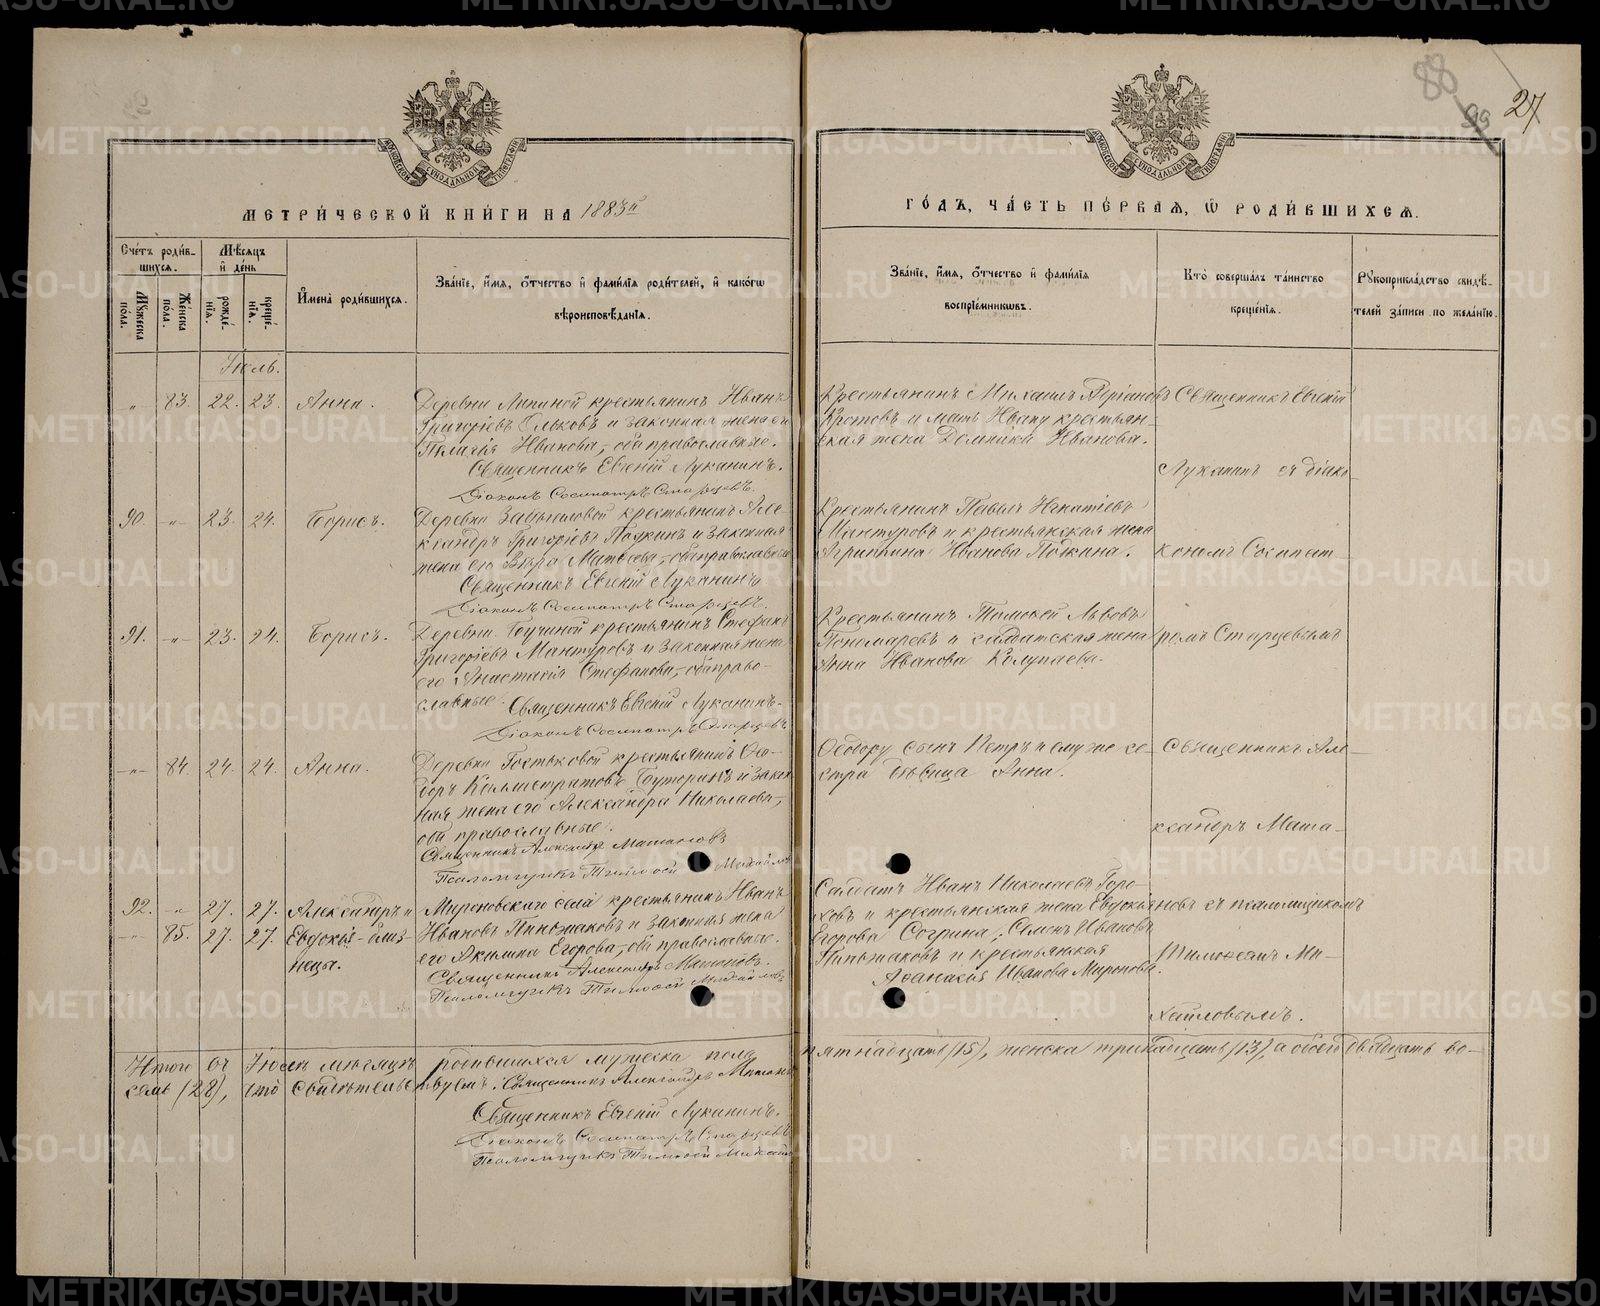 METRIKI.GASO-URAL.RU
88
99
27
МОСКОВСКОЙ СѴНОДАЛЬНОЙ ТИПОГРАФІИ
МЕТРИ́ЧЕСКОЙ КНИ́ГИ НА 1883й
ГО́ДЪ, ЧА́СТЬ ПЕ́РВАЯ, Ѡ РОДИ́ВШИХСЯ.
Сче́тъ роди́вшихся.
Му́жеска по́ла.
Же́нска по́ла.
Мѣ́сяцъ и҆ де́нь
рожде́нїя.
креще́нїя.
И҆мена̀ роди́вшихся.
Зва́нїе, и҆́мя, ѻ҆́тчество и҆ фами́лїя роди́телей, и҆ како́гѡ
вѣроисповѣ́данїя.
Зва́нїе, и҆́мя, ѻ҆́тчество и҆ фами́лїя
воспрїе́мникѡвъ.
Кто̀ соверша́лъ та́инство
креще́нїя.
Рꙋкоприкла́дство свидѣ́телей за́писи по жела́нїю.
Іюль.
„ 83. 22. 23. Анна.
Деревни Липиной крестьянинъ Иванъ
Григоріевъ Ольковъ и законная жена его
Пелагія Иванова, оба православные.
Священникъ Евгеній Луканинъ.
Діаконъ Сосипатръ Старцевъ.
Крестьянинъ Михаилъ
Кротовъ и мать Ивану крестьян-
ская жена Домника Иванова.
Священникъ Евгеній
Луканинъ съ діако-
90. „ 23. 24. Борисъ.
Деревни крестьянинъ Але-
ксандръ Григоріевъ и законная
жена его Вѣра Матвѣева, оба православные
Священникъ Евгеній Луканинъ
Діаконъ Сосипатръ Старцевъ.
Крестьянинъ Павелъ Игнатіевъ
Мантуровъ и крестьянская жена
Агриппина Иванова
номъ Сосипат-
91. „ 23. 24. Борисъ.
Деревни крестьянинъ Стефанъ
Григоріевъ Мантуровъ и законная жена
его Анастасія Стефанова, оба право-
славные. Священникъ Евгеній Луканинъ.
Діаконъ Сосипатръ Старцевъ
Крестьянинъ Тимофей Львовъ
Пономаревъ и солдатская жена
Анна Иванова Колупаева.
ромъ Старцевымъ
„ 84. 24. 24. Анна.
Деревни крестьянинъ Ѳео-
доръ Каллистратовъ Буторинъ и закон-
ная жена его Александра Николаева,
оба православные.
Священникъ Александръ
Псаломщикъ Тимоѳей Михайловъ
Ѳеодору сынъ Петръ и ему же се-
стра дѣвица Анна.
Священникъ Але-
ксандръ
92. „ 27. 27. Александръ и
„ 85. 27. 27. Евдокія – близ-
нецы.
Мироновскаго села крестьянинъ Иванъ
Ивановъ Пинжаковъ и законная жена
его Акилина Егорова, оба православные.
Священникъ Александръ
Псаломщикъ Тимоѳей Михайловъ
Солдатъ Иванъ Николаевъ Горо-
ховъ и крестьянская жена Евдокія
Егорова Согрина; Семенъ Ивановъ
Пинжаковъ и крестьянская
Аѳанасія Иванова Миронова.
новъ съ псаломщикомъ
Тимоѳеемъ Ми-
хайловымъ.
Итого въ Іюлѣ мѣсяцѣ родившихся мужеска пола пятнадцать (15), женска тринадцать (13), а обоего двадцать во-
семь (28), что свидѣтельствуемъ: Священникъ Александръ
Священникъ Евгеній Луканинъ.
Діаконъ Сосипатръ Старцевъ
Псаломщикъ Тимоѳей Михайловъ